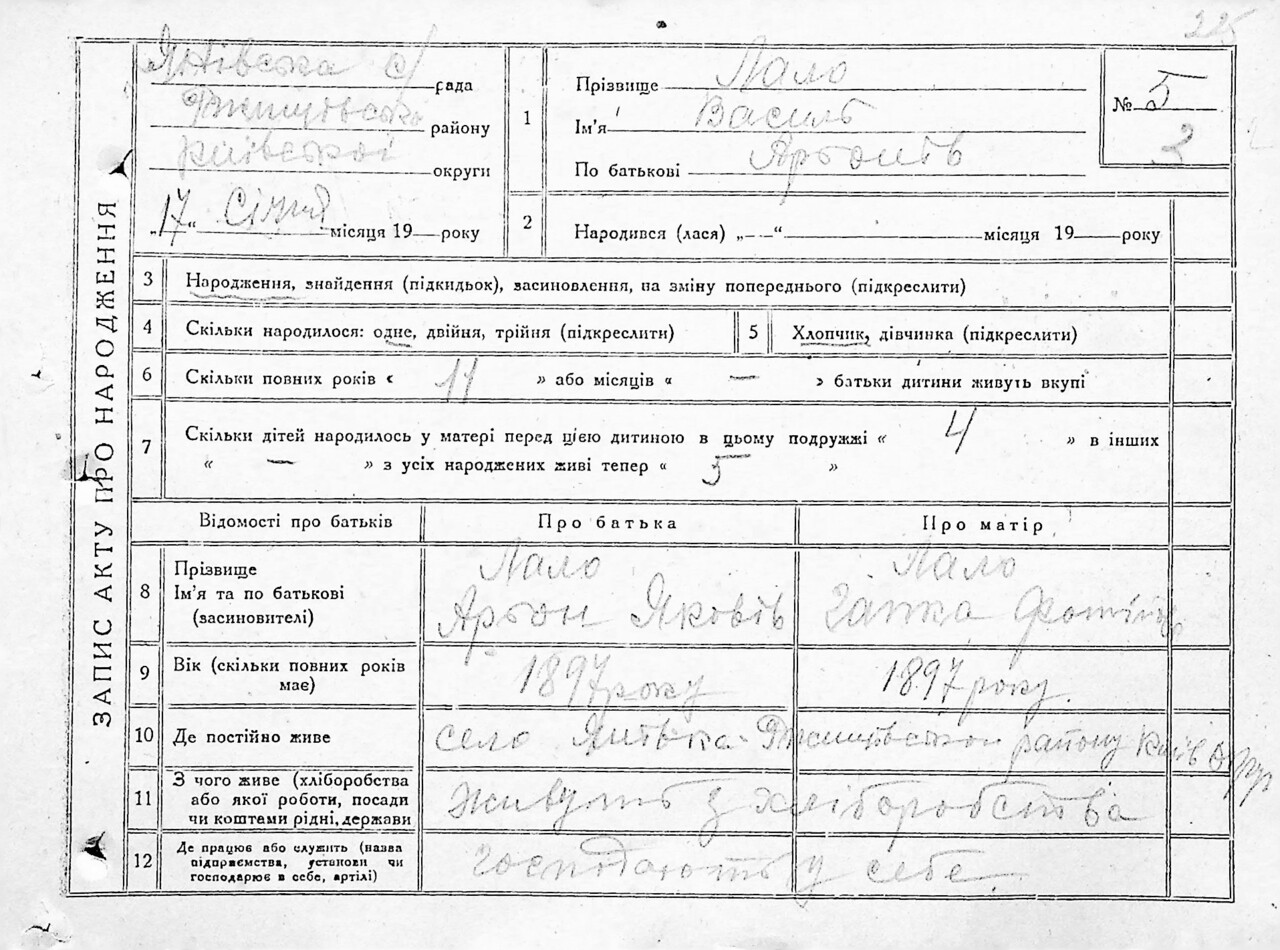 225
ЗАПИС АКТУ ПРО НАРОДЖЕННЯ
с/рада
району
Київської округи
„17“ Січня місяця 19 року
1
Прізвище Лало
Ім'я Василь
По батькові
№ 5
3
2
Народився (лася) „—“ місяця 19 року
3 Народження, знайдення (підкидьок), засиновлення, на зміну попереднього (підкреслити)
4 Скільки народилося: одне, двійня, трійня (підкреслити)
5 Хлопчик, дівчинка (підкреслити)
6 Скільки повних років « 11 » або місяців « — » батьки дитини живуть вкупі
7 Скільки дітей народилось у матері перед цією дитиною в цьому подружжі « 4 » в інших
« — » з усіх народжених живі тепер « 5 »
Відомості про батьків
Про батька
Про матір
8 Прізвище
Ім'я та по батькові
(засиновителі)
Лало
Яковів
Лало
Гапка
9 Вік (скільки повних років
має)
1897 року
1897 року
10 Де постійно живе
село району Київ округ
11 З чого живе (хліборобства
або якої роботи, посади
чи коштами рідні, держави
Живуть з хліборобства
12 Де працює або служить (назва
підприємства, установи чи
господарює в себе, артілі)
господають у себе.